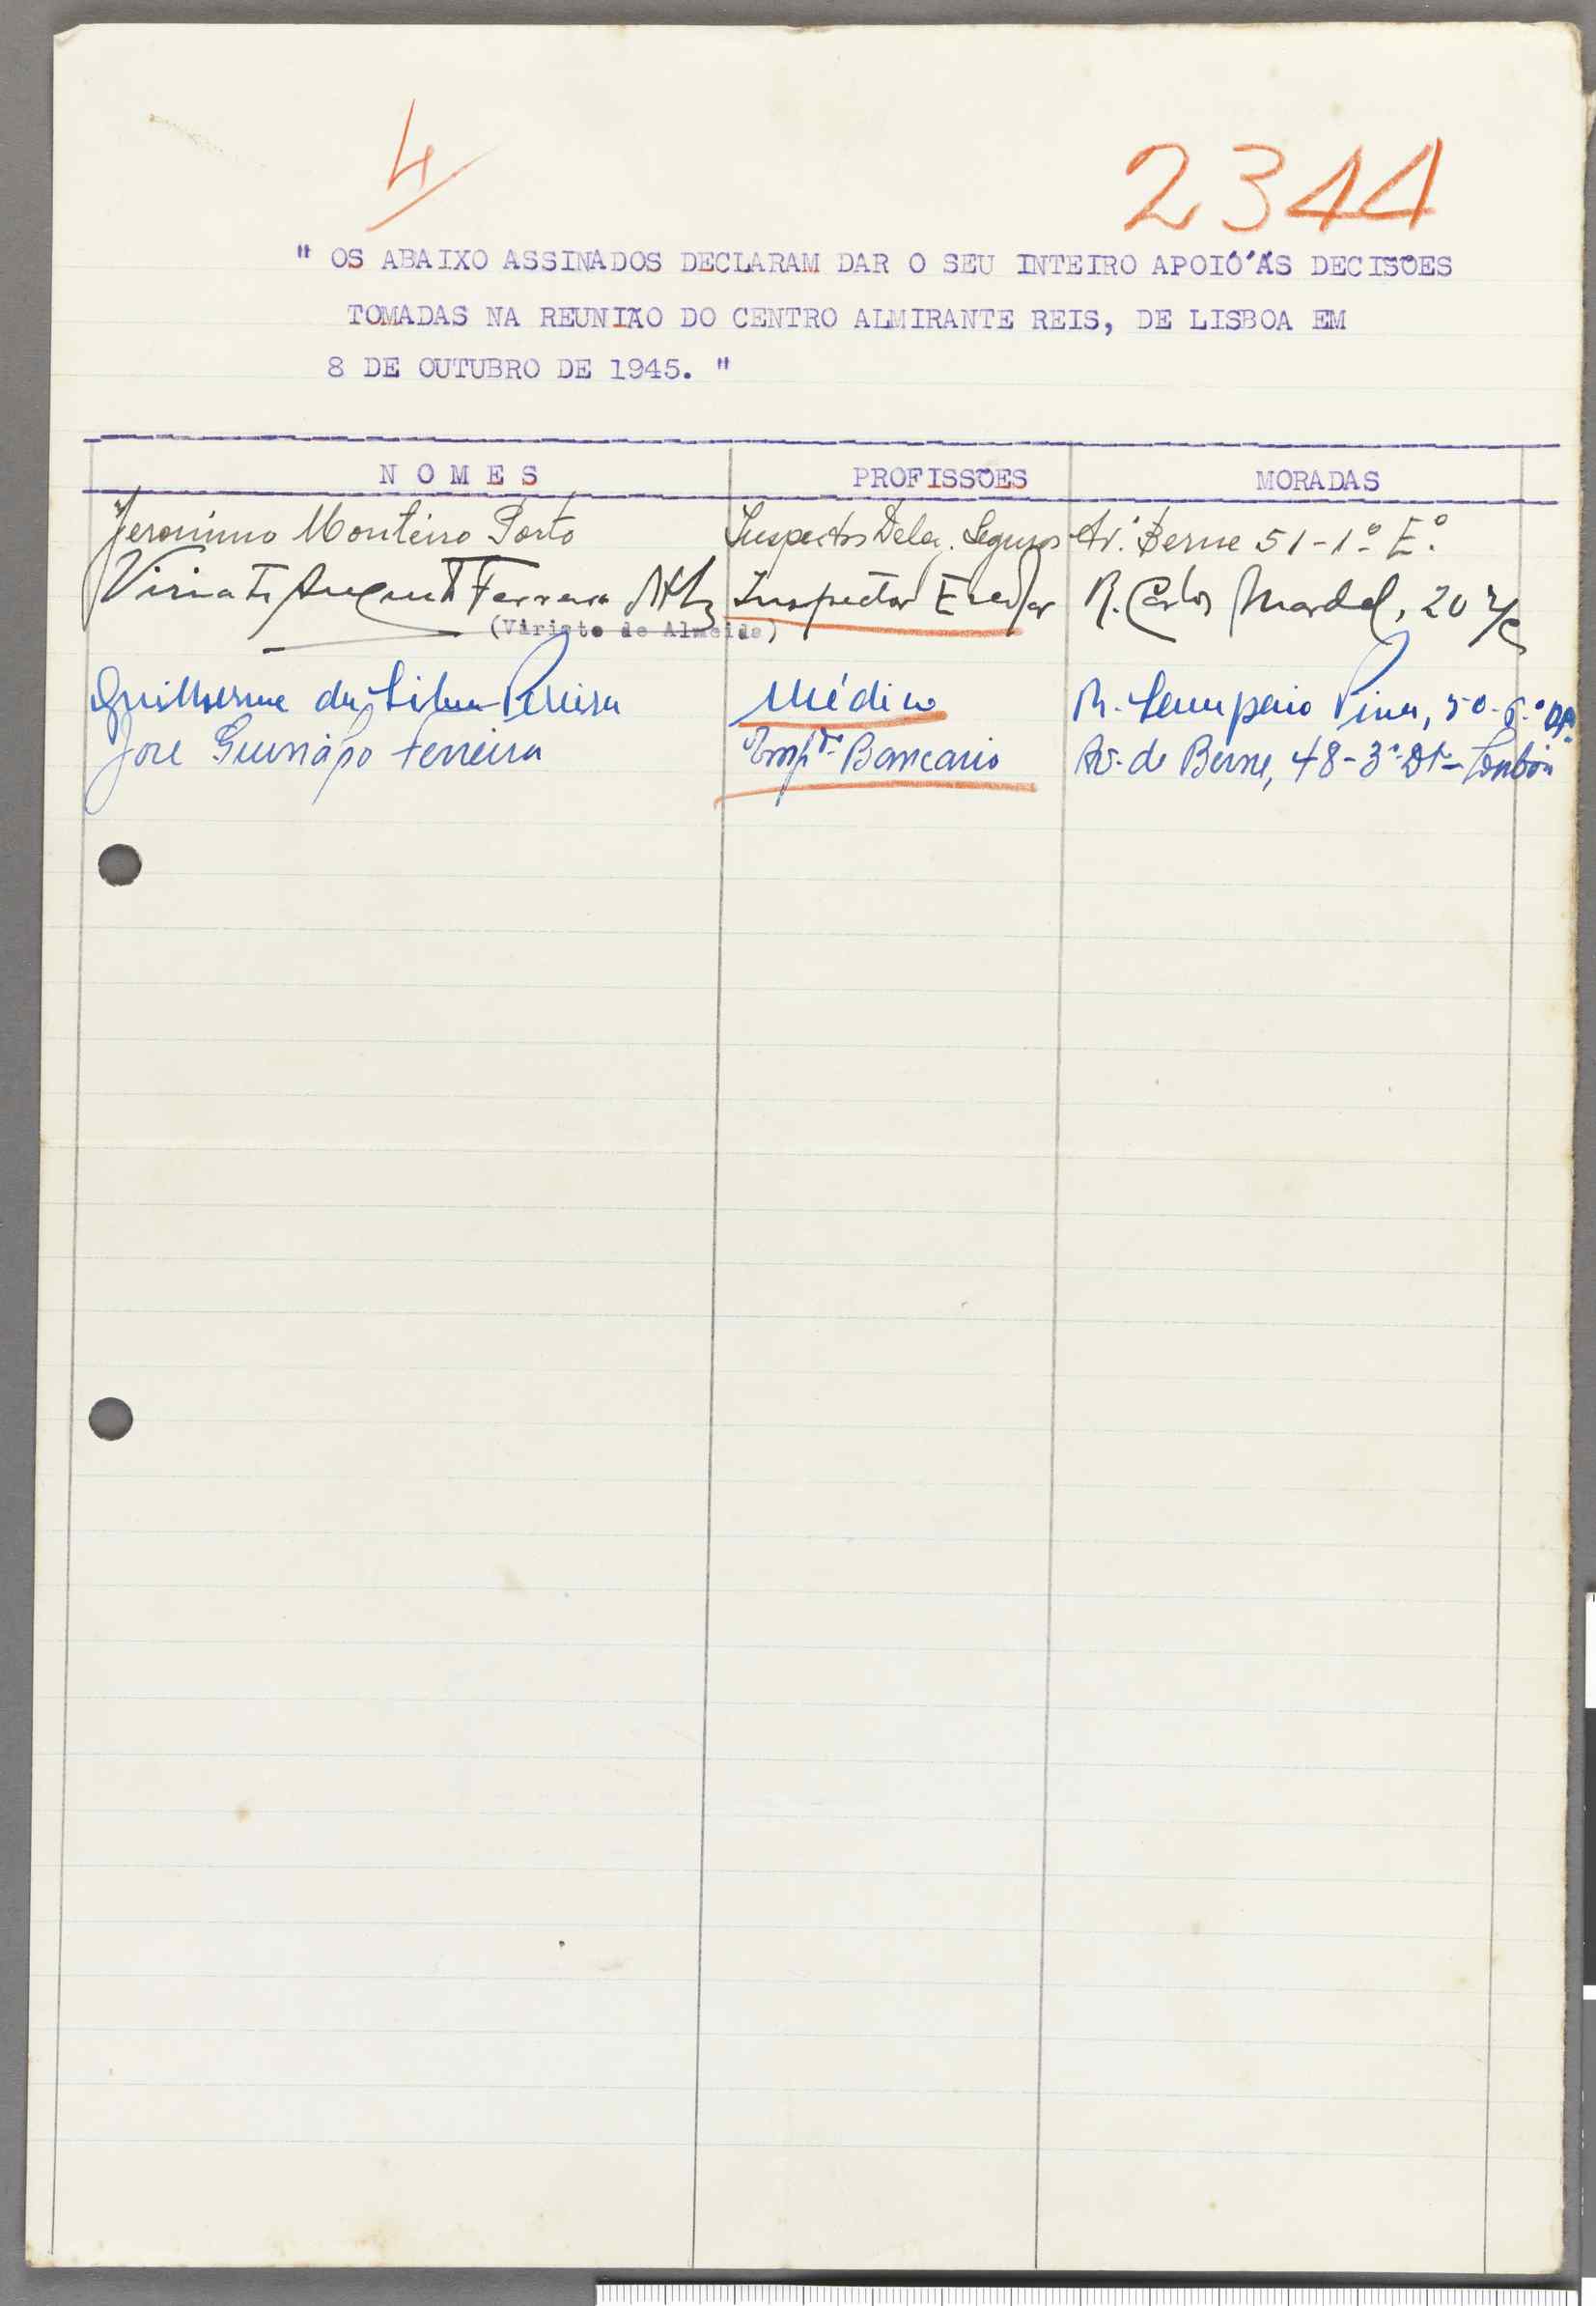 4
2344
" OS ABAIXO ASSINADOS DECLARAM DAR O SEU INTEIRO APOIO ÁS DECISÕES
TOMADAS NA REUNIÃO DO CENTRO ALMIRANTE REIS, DE LISBOA EM
8 DE OUTUBRO DE 1945. "
N O M E S PROFISSÕES MORADAS
Jeronimo Monteiro Porto Inspector Deleg. Seguros Av. Berne 51-1º E.º
Viriato Augusto Ferreira Inspector Escolar R. Carlos Mardel, 20 r/c
(Viriato de Almeida)
Guilherme da Silva Pereira Médico R. Sampaio Pina, 50-6.º Dt.
José Ferreira Empº Bancario Av. de Berne, 48-3º Dt-Lisboa